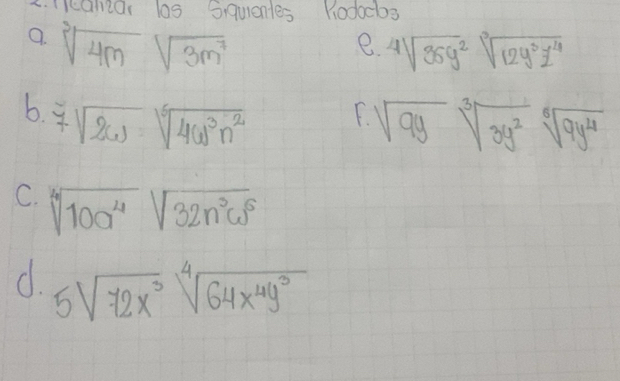 los Siguientes Productos
a. ∛4m √3m⁷
e. 4√36y² ∛12y³z⁴
b. √2w ⁵√4w³n²
f. √9y ∛3y² ⁶√9y⁴
c. ⁴√10a⁴ √32n³w⁵
d. 5√72x³ ⁴√64x⁴y³